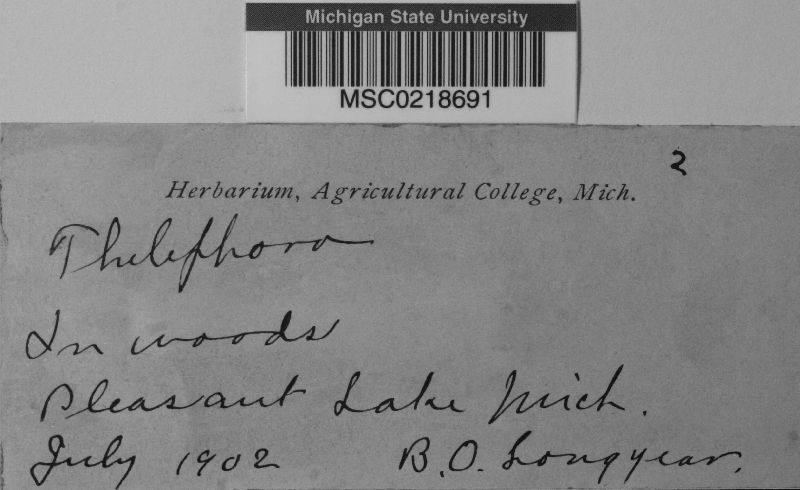 Michigan State University
MSC0218691
2
Herbarium, Agricultural College, Mich.
Thelephora
In woods
Pleasant Lake Mich.
July 1902 B.O. Longyear.